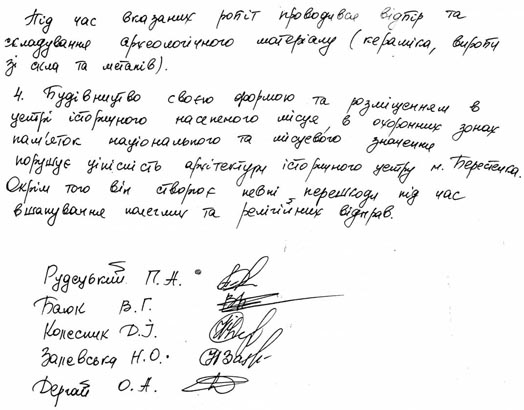 Під час вказаних робіт проводився відбір та
складування археологічного матеріалу (кераміка, вироби
зі скла та металів).
4. Будівництво своєю формою та розміщенням в
центрі історичного населеного місця, в охоронних зонах
пам'яток національного та місцевого значення
порушує цілісність архітектури історичного центру м. Берестечка.
Окрім того він створює певні перешкоди під час
вшанування полеглих та релігійних відправ.
Рудецький П. А.
Баюк В. Г.
Колесник Д. І.
Залевська Н. О.
Дергай О. А.